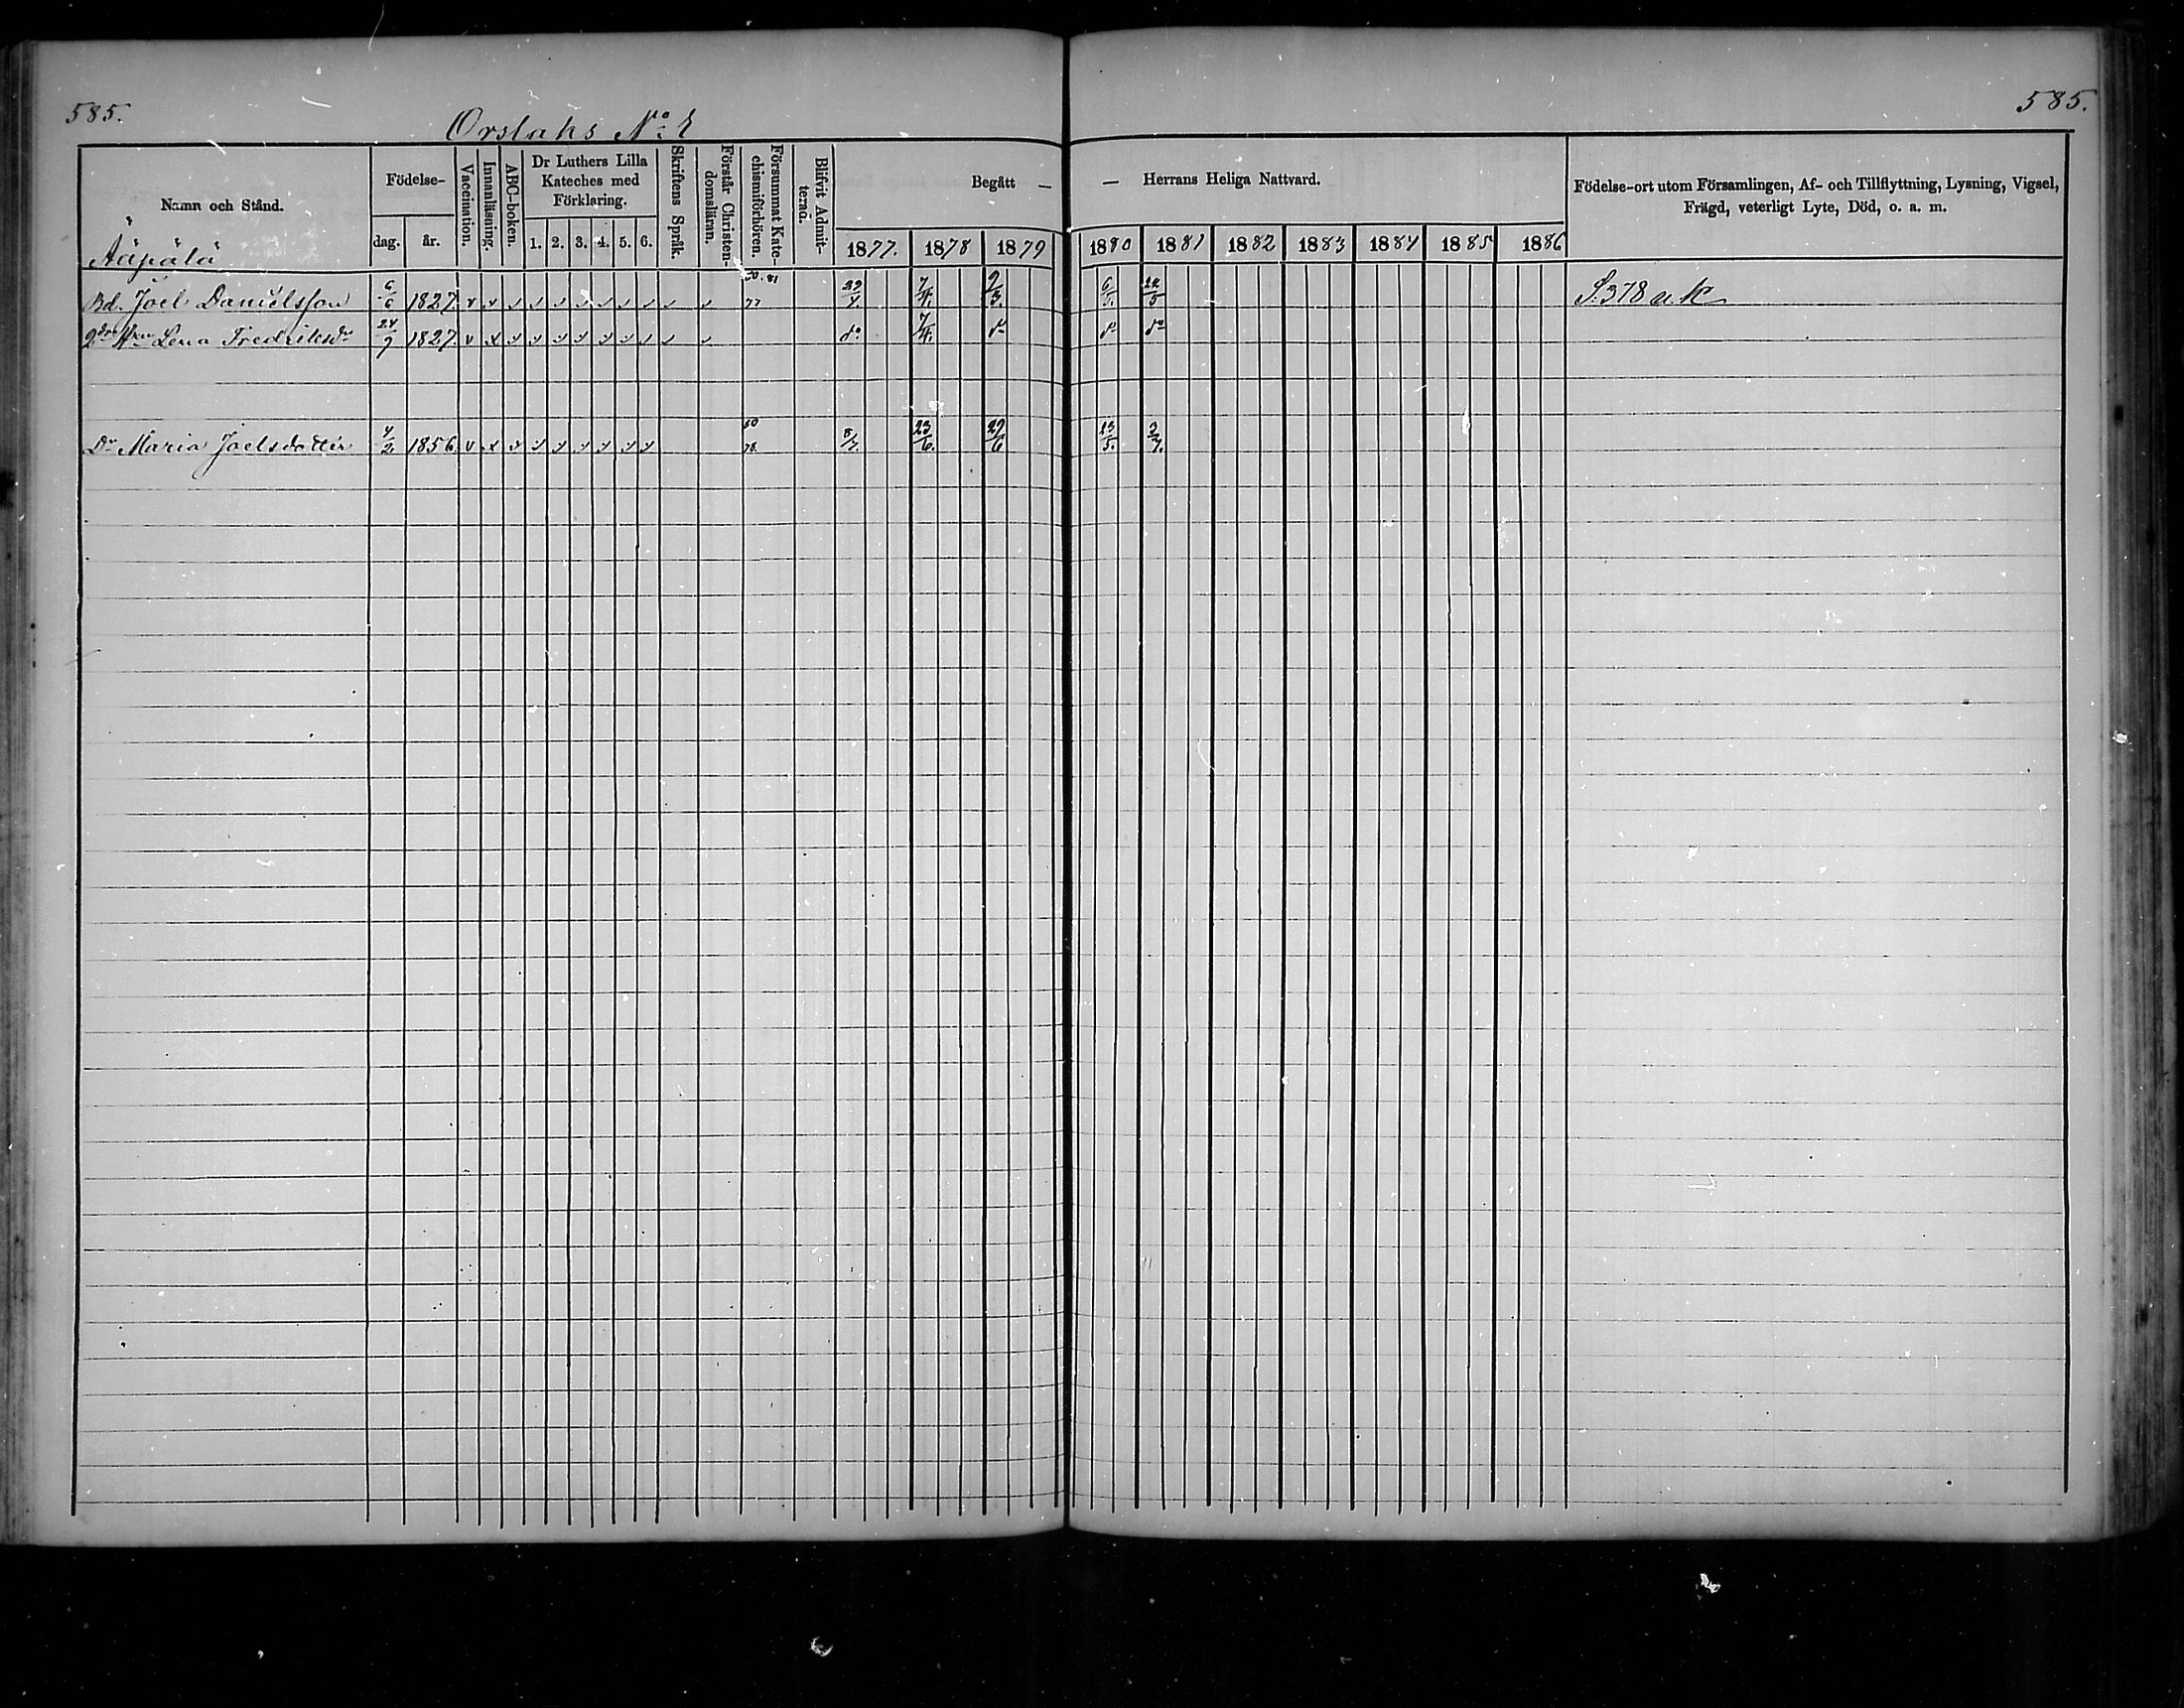 585.
585.
Orslahs No 2
Namn och Stånd.
Födelse-
dag.
år.
Vaccination.
Innanläsning.
ABC-boken.
Dr Luthers Lilla
Kateches med
Förklaring.
1. 2. 3. 4. 5. 6.
Skriftens Språk.
Förstår Christen-
domsläran.
Försummat Kate-
chismiförhören.
Blifvit Admit-
terad.
Begått —
— Herrans Heliga Nattvard.
1877. 1878 1879 1880 1881 1882 1883 1884 1885 1886
Födelse-ort utom Församlingen, Af- och Tillflyttning, Lysning, Vigsel,
Frägd, veterligt Lyte, Död, o. a. m.
Ääpälä
Bd. Joel Danielsson 6/6 1827. v 80. 81 77 29/4. 7/4. 9/3. 6/5. 22/5 S. 378 a. K
Lena Fredriksdr 24/9 1827 v do. 7/4. do do do
Dr Maria Joelsdotter 4/2. 1856 v 80 78. 8/7. 23/6. 29/6 23/5. 3/7.